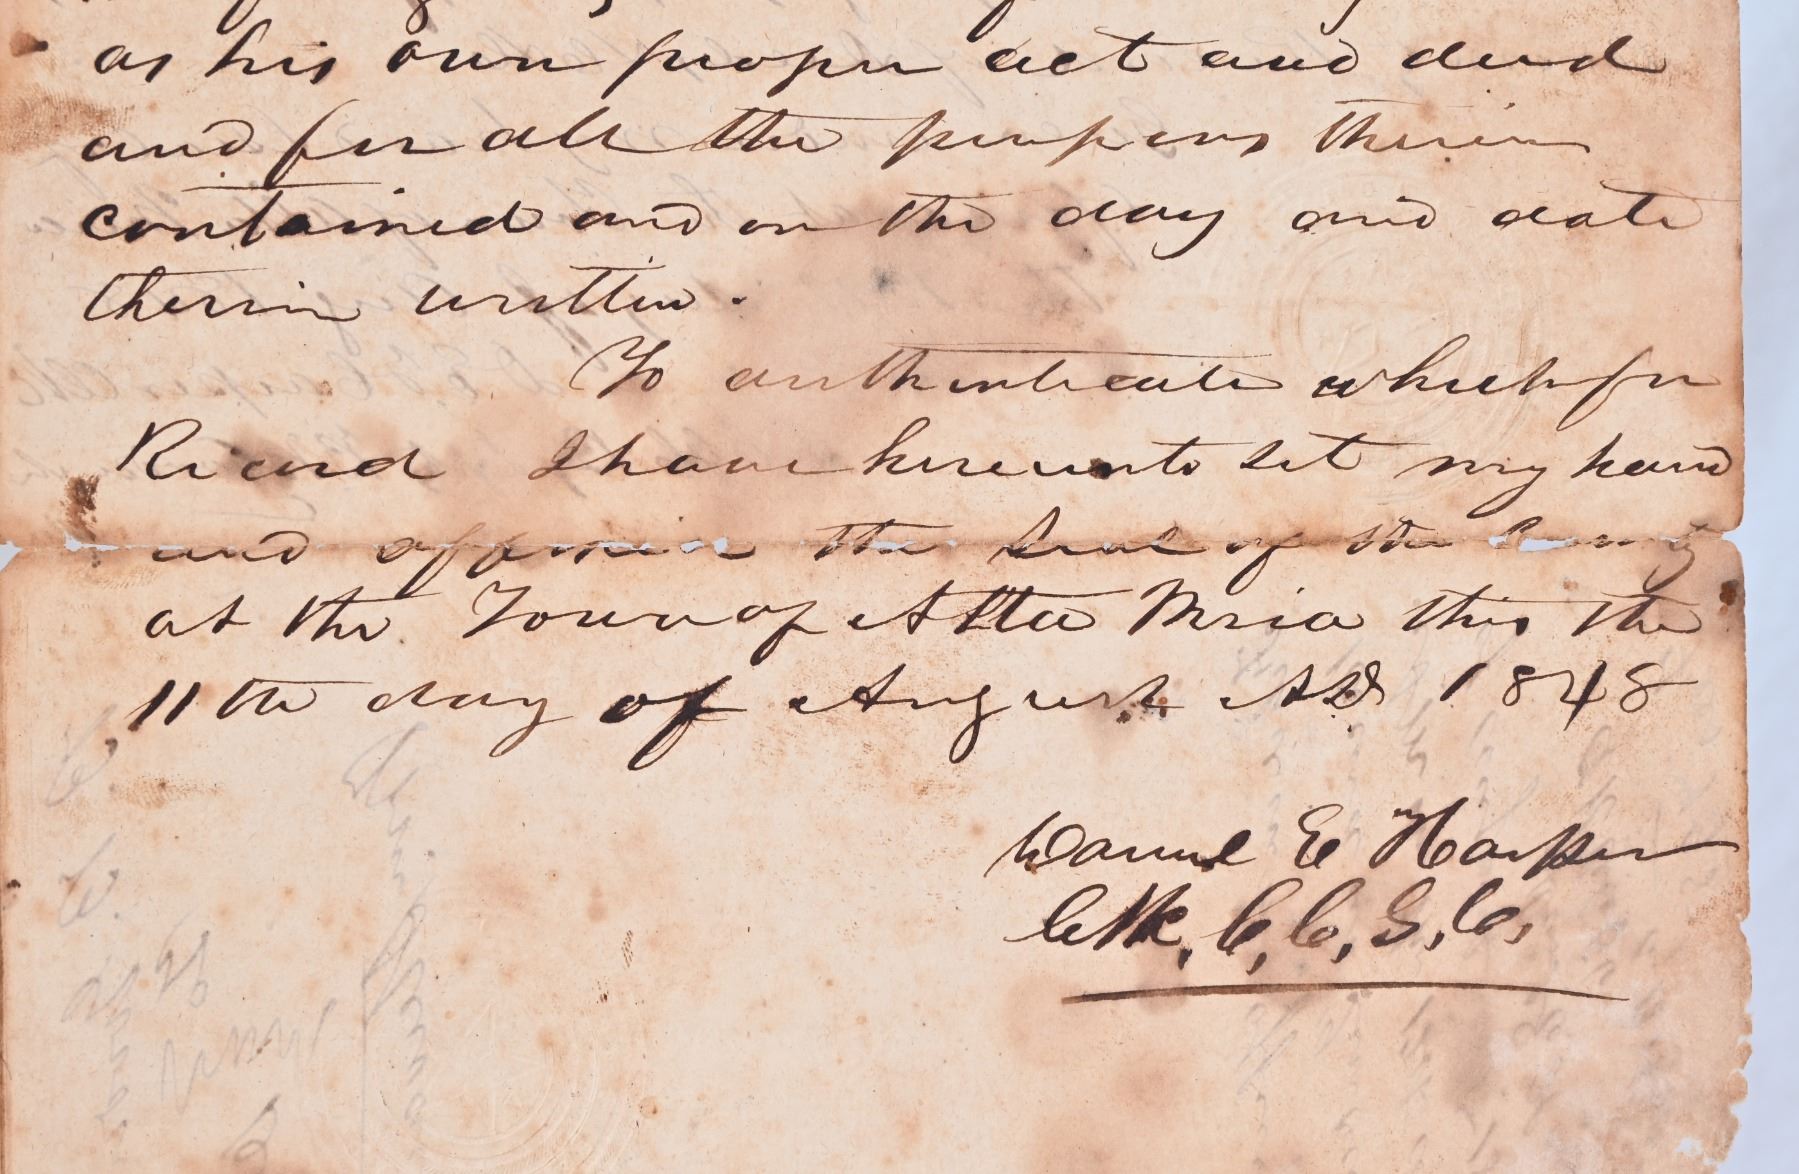 as his own proper act and deed
and for all the purposes therein
contained and on the day and date
therein written.
To authenticate which for
Record I have hereunto set my hand
and affixed the Seal of the County
at the Town of Alta Mria this the
11th day of August AD 1848
Daniel E Harper
Clk, C, C, G, C,